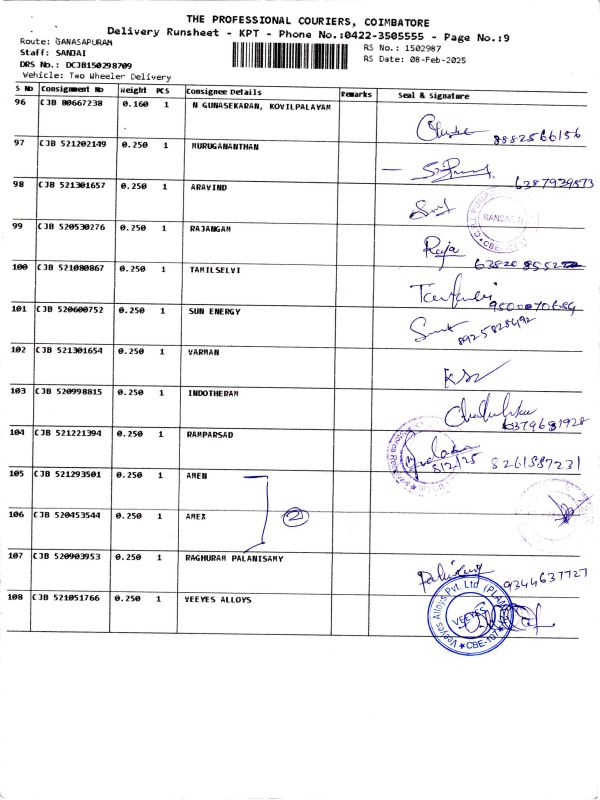 THE PROFESSIONAL COURIERS, COIMBATORE
Delivery Runsheet - KPT - Phone No.:0422-3505555 - Page No.:9
Route: GANASAPURAM
RS No.: 1502987
Staff: SANJAI
DRS No.: DCJB150298709
RS Date: 08-Feb-2025
Vehicle: Two Wheeler Delivery
S No Consignment No Weight PCS Consignee Details Remarks Seal & Signature
96 CJB 80667238 0.160 1 N GUNASEKARAN, KOVILPALAYAM
8882566156
97 CJB 521202149 0.250 1 MURUGANANTHAN
98 CJB 521301657 0.250 1 ARAVIND
99 CJB 520530276 0.250 1 RAJANGAM
Raja
100 CJB 521080867 0.250 1 TAMILSELVI
101 CJB 520600752 0.250 1 SUN ENERGY
8925828492
102 CJB 521301654 0.250 1 VARMAN
103 CJB 520998815 0.250 1 INDOTHERAM
6379681928
104 CJB 521221394 0.250 1 RAMPARSAD
8/2/25 8261587231
105 CJB 521293501 0.250 1 AMEN
106 CJB 520453544 0.250 1 AMEX
2
107 CJB 520903953 0.250 1 RAGHURAM PALANISAMY
9344637727
108 CJB 521051766 0.250 1 VEEYES ALLOYS
Veeyes Alloys Pvt. Ltd
VEEYES
CBE-107